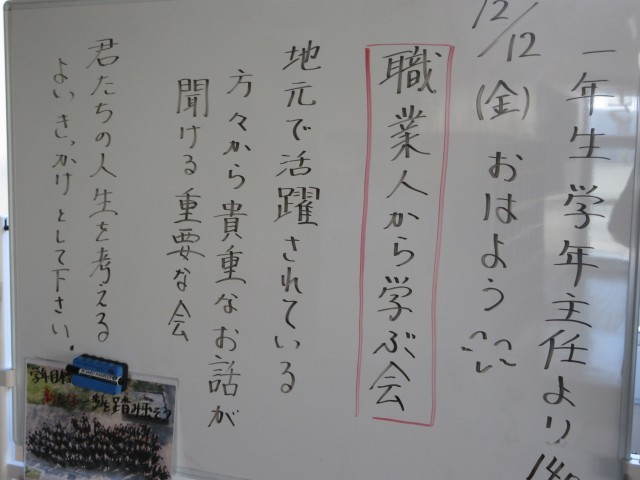 一年生学年主任より
12/12(金)おはよう
職業人から学ぶ会
地元で活躍されている
方々から貴重なお話が
聞ける重要な会
君たちの人生を考える
よいきっかけとして下さい.
学年目標